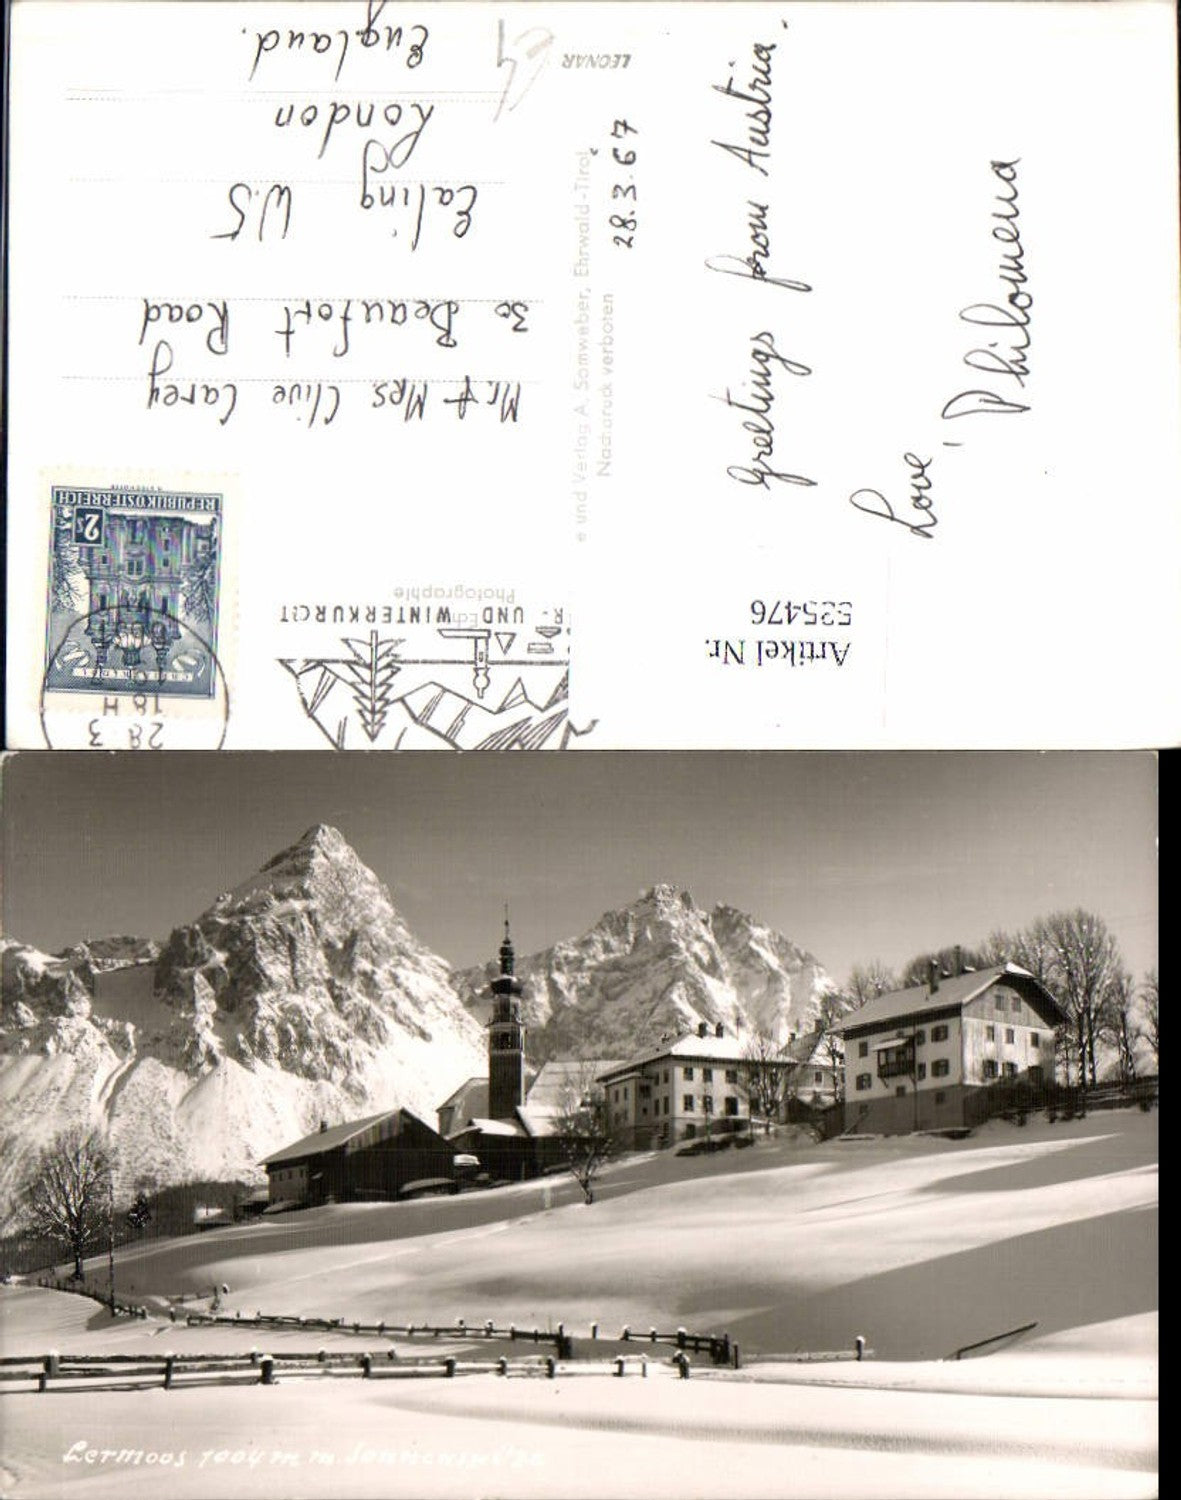 Mr. & Mrs. Clive Carey
30 Beaufort Road
Ealing W.5
London
England.
Greetings from Austria.
Love,
Philomena
28.3.67
LEONAR
e und Verlag A. Somweber, Ehrwald-Tirol
Nachdruck verboten
Artikel Nr.
535476
REPUBLIK ÖSTERREICH
28.3
18 H
UND WINTERKURORT
Photographie
Lermoos 1004 m m. Sonnenspitze